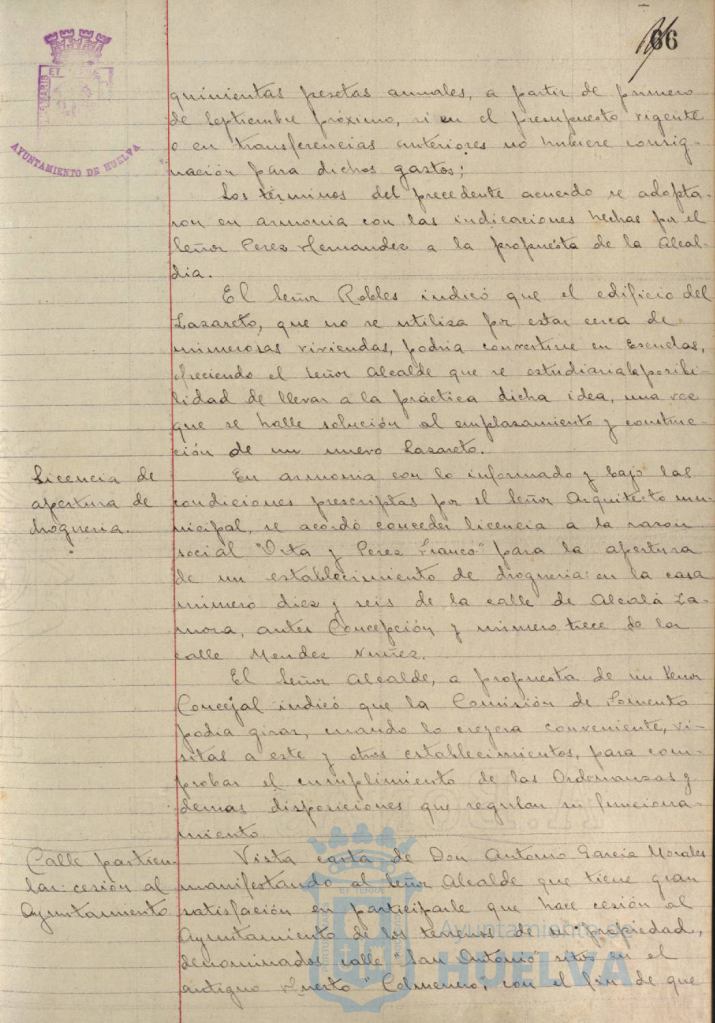 66
AYUNTAMIENTO DE HUELVA
quinientas pesetas anuales, a partir de primero
de Septiembre próximo, si en el presupuesto vigente
o en transferencias anteriores no hubiere consig-
nación para dichos gastos;
Los términos del precedente acuerdo se adopta-
ron en armonia con las indicaciones hechas por el
Señor Perez Hernandez a la propuesta de la Alcal-
dia.
El Señor Robles indicó que el edificio del
Lazareto, que no se utiliza por estar cerca de
numerosas viviendas, podria convertirse en Escuelas,
ofreciendo el Señor Alcalde que se estudiaria la posibi-
lidad de llevar a la práctica dicha idea, una vez
que se halle solución al emplazamiento y construc-
ción de un nuevo Lazareto.
Licencia de
apertura de
drogueria.
En armonia con lo informado y bajo las
condiciones prescriptas por el Señor Arquitecto mu-
nicipal, se acordó conceder licencia a la razon
social "Orta y Perez Franco" para la apertura
de un establecimiento de drogueria en la casa
número diez y seis de la calle de Alcalá Za-
mora, antes Concepción y número trece de la
calle Mendez Nuñez.
El Señor Alcalde, a propuesta de un Señor
Concejal indicó que la Comisión de Fomento
podia girar, cuando lo creyera conveniente, vi-
sitas a este y otros establecimientos, para com-
probar el cumplimiento de las Ordenanzas y
demas disposiciones que regulan su funciona-
miento.
Calle particu-
lar: cesión al
Ayuntamiento
Vista carta de Don Antonio Garcia Morales
manifestando al Señor Alcalde que tiene gran
satisfación en participarle que hace cesión al
Ayuntamiento de los terrenos de su propiedad,
denominados calle "San Antonio" sitos en el
antiguo Huerto "Colmenero, con el fin de que
Ayuntamiento
HUELVA